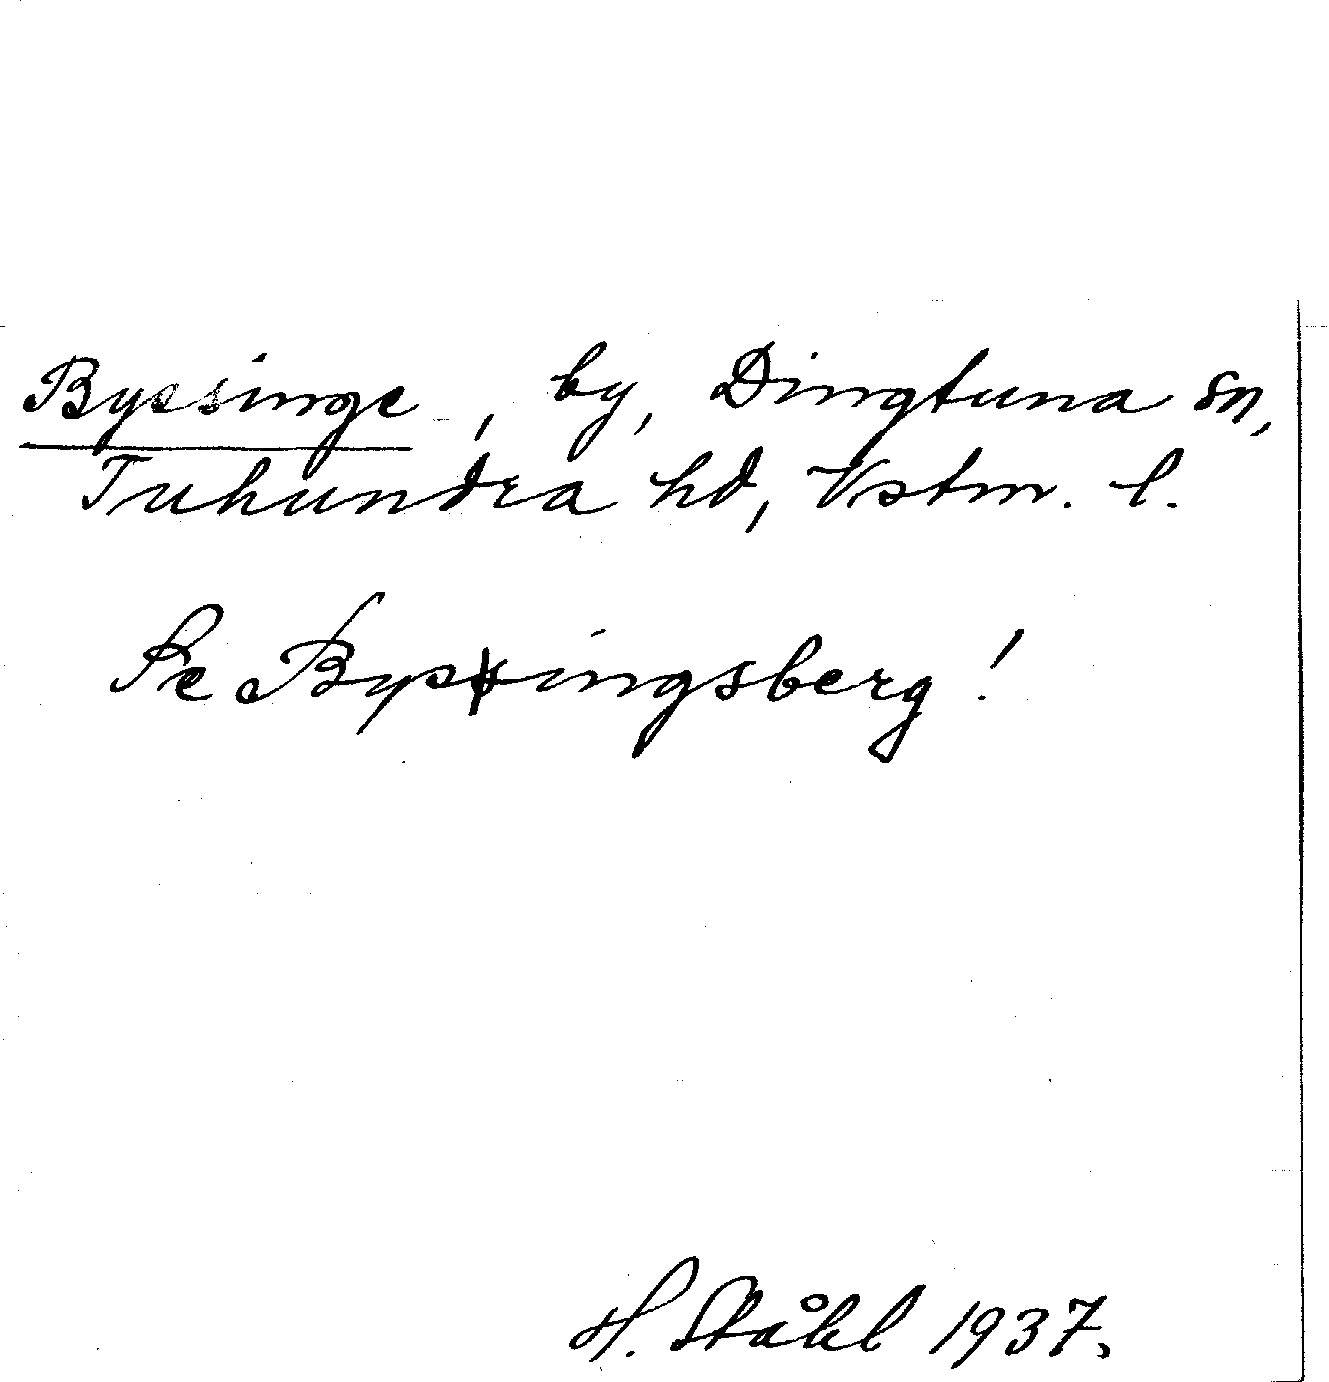 Byssinge, by, Dingtuna sn,
Tuhundra hd, Vstm. l.
Se Byssingsberg!
H. Ståhl 1937.